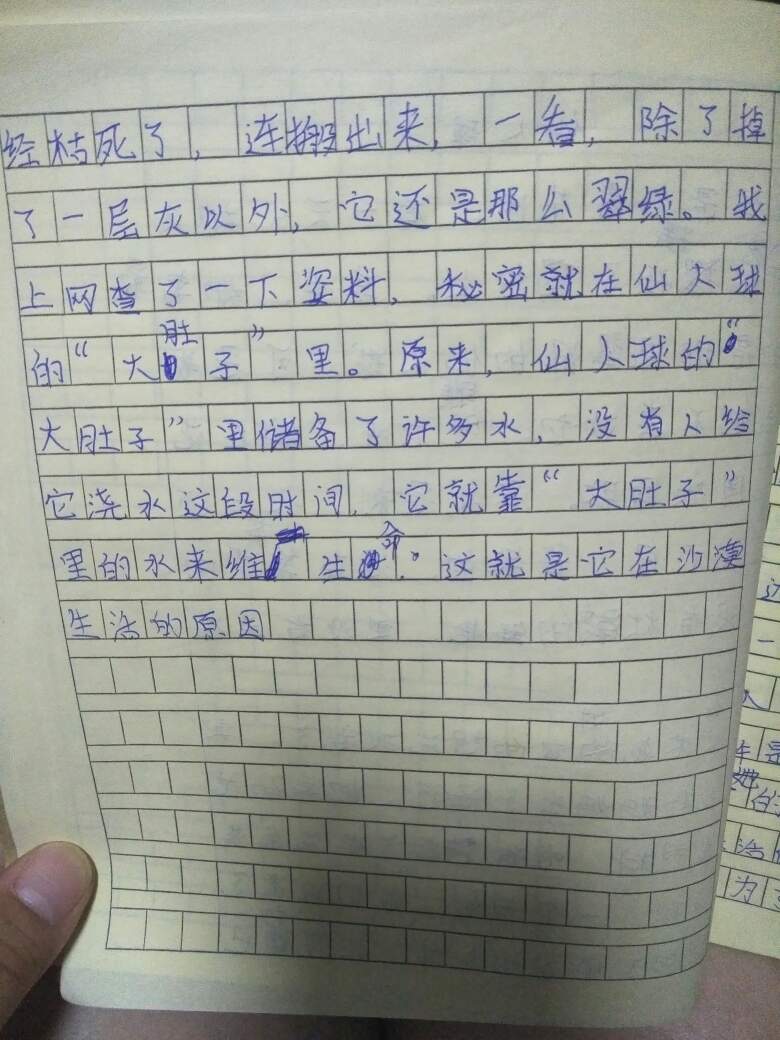 经枯死了，连搬出来，一看，除了掉
了一层灰以外，它还是那么翠绿。我
上网查了一下资料，秘密就在仙人球
的“大肚子”里。原来，仙人球的“
大肚子”里储备了许多水，没有人给
它浇水这段时间，它就靠“大肚子”
里的水来维生命。这就是它在沙漠
生活的原因